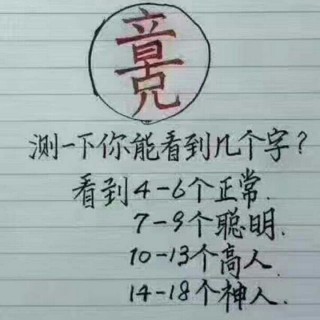 测一下你能看到几个字？
看到4-6个正常.
7-9个聪明.
10-13个高人.
14-18个神人.